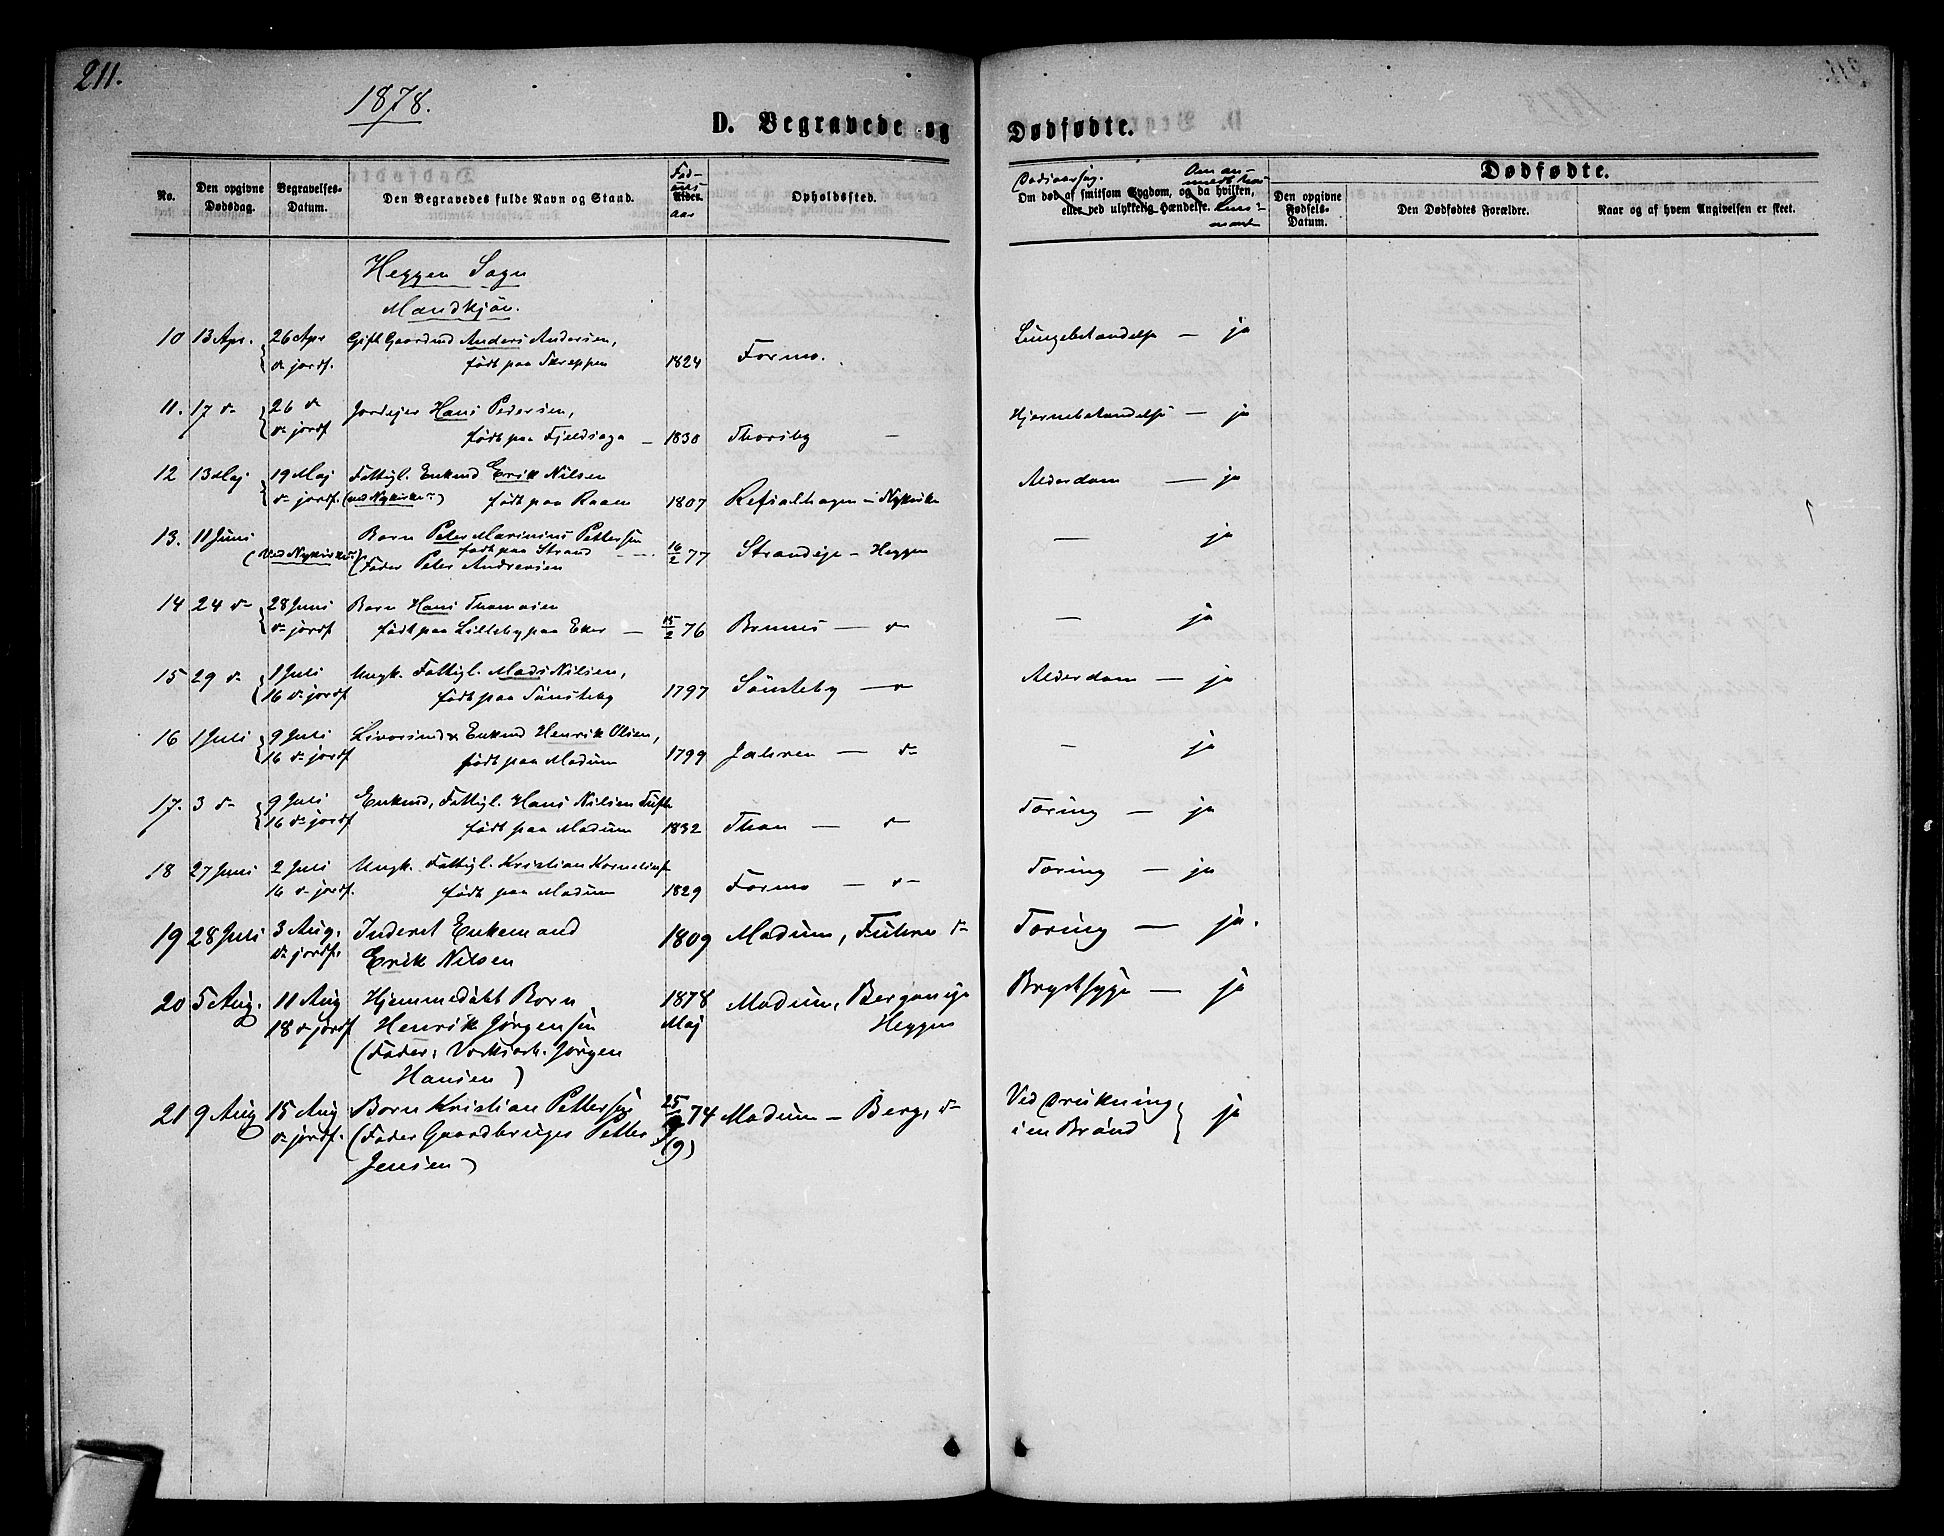 211.
1878.
D. Begravede og Dødfødte.
No.
Den opgivne Dødsdag.
Begravelses-Datum.
Den Begravedes fulde Navn og Stand.
Fød-
sels-
Alder.
aar
Opholdssted.
Dødsaarsag.
Om død af smitsom Sygdom, og da hvilken,
eller ved ulykkelig Hændelse.
Dødfødte.
Den opgivne Fødsels-Datum.
Den Dødfødtes Forældre.
Naar og af hvem Angivelsen er skeet.
Heggen Sogn
Mandkjøn.
10 13 Apr. 26 Apr Gift Gaardmd Anders Andersen, Lungebetændelse — ja
d. jordf. født paa Skreppen 1824 Formo.
11. 17 d. 26 d. Jordejer Hans Pedersen, Hjernebetændelse — ja
d. jordf født paa Fjeldsaga — 1830 Thorsby —
12 13 Maj 19 Maj Fattigl. Enkmd Erik Nilsen Alderdom — ja
d. jordf. (ved Nykirke) født paa Raaen 1807 Refsalhagen — Nykirke
13. 11 Juni Barn Peter Marinius Pettersen — ja
(Ved Nykirke) født paa Strand — 16/2 77 Strandeje — Heggen
(Fader Peter Andreasen
14 24 d. 28 Juni Barn Hans Thomasen — ja
d. jordf født paa Lilleby paa Eker — 15/2 76 Brunes — d.
15 29 d. 1 Juli Ungk. Fattigl. Mads Nilsen, Alderdom — ja
16 d. jordf født paa Sønsteby 1797 Sønsteby — d.
16 1 Juli 9 Juli Livørsmd & Enkmd Henrik Olsen, — ja
16 d. jordf født paa Modum 1799 Jahren — d.
17. 3 d. 9 Juli Enkmd, Fattigl. Hans Nilsen Tufte Tæring — ja
16 d. jordf født paa Modum 1832 Thon — d.
18 27 Juni 2 Juli Ungk. Fattigl. Kristian Korneliusf Tæring — ja
16 d. jordf. født paa Modum 1829 Formo — d.
19 28 Juli 3 Aug. Inderst Enkemand 1809 Modum, Fuhre d. Tæring — ja.
d. jordf. Erik Nilsen
20 5 Aug. 11 Aug Hjemmedøbt Barn 1878 Modum, Berganeje Brystsyge — ja
18 d. jordf Henrik Jørgensen Maj Heggen
(Fader: Værksarb. Jørgen
Hansen)
21 9 Aug 15 Aug Barn Kristian Pettersen 25/9 74 Modum — Berg, d. Ved Drukning ja
d. jordf. (Fader Gaardbruger Petter (9) i en Brønd
Jensen)